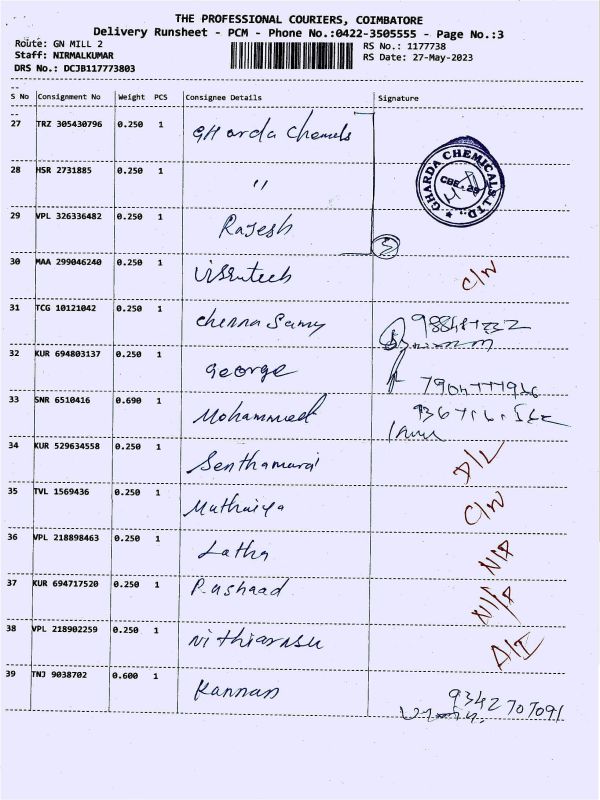 THE PROFESSIONAL COURIERS, COIMBATORE
Delivery Runsheet - PCM - Phone No.:0422-3505555 - Page No.:3
Route: GN MILL 2 RS No.: 1177738
Staff: NIRMALKUMAR RS Date: 27-May-2023
DRS No.: DCJB117773803
S No Consignment No Weight PCS Consignee Details Signature
27 TRZ 305430796 0.250 1 GHarda Chemicals
GHARDA CHEMICALS LTD.
CBE-29
28 HSR 2731885 0.250 1 "
29 VPL 326336482 0.250 1 Rajesh
5
30 MAA 299046240 0.250 1 C/N
31 TCG 10121042 0.250 1 Chenna Samy
32 KUR 694803137 0.250 1 George
33 SNR 6510416 0.690 1 Mohammed
34 KUR 529634558 0.250 1 Senthamarai D/L
35 TVL 1569436 0.250 1 Muthaiya C/N
36 VPL 218898463 0.250 1 Latha N/A
37 KUR 694717520 0.250 1 Rashaad N/A
38 VPL 218902259 0.250 1 Nithiarasu
39 TNJ 9038702 0.600 1 Kannan 9342707091